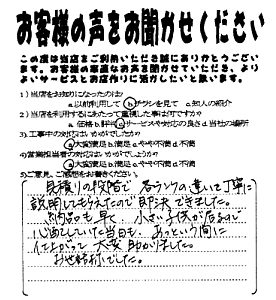 お客様の声をお聞かせください
この度は当店をご利用いただき誠にありがとうござい
ます。お客様の率直なお声を聞かせていただき、より
よいサービスとお店作りに活かしたいと思います。
1)当店をお知りになったのは?
a.以前利用して b.チラシを見て c.知人の紹介
2)当店を利用するにあたって重視した事は何ですか?
a.価格 b.評判 c.サービスや対応の良さ d.当社の場所
3)工事中の対応はいかがでしたか?
a.大変満足 b.満足 c.やや不満 d.不満
4)営業担当者の対応はいかがでしょうか?
a.大変満足 b.満足 c.やや不満 d.不満
5)ご意見、ご感想をお書きください。
見積りの段階で 各ランクの違いを丁寧に
説明してもらえたので即決できました。
納品も早く、小さい子供が居るので
心配していた当日も、あっという間に
仕上がって 大変助かりました。
お世話様でした。